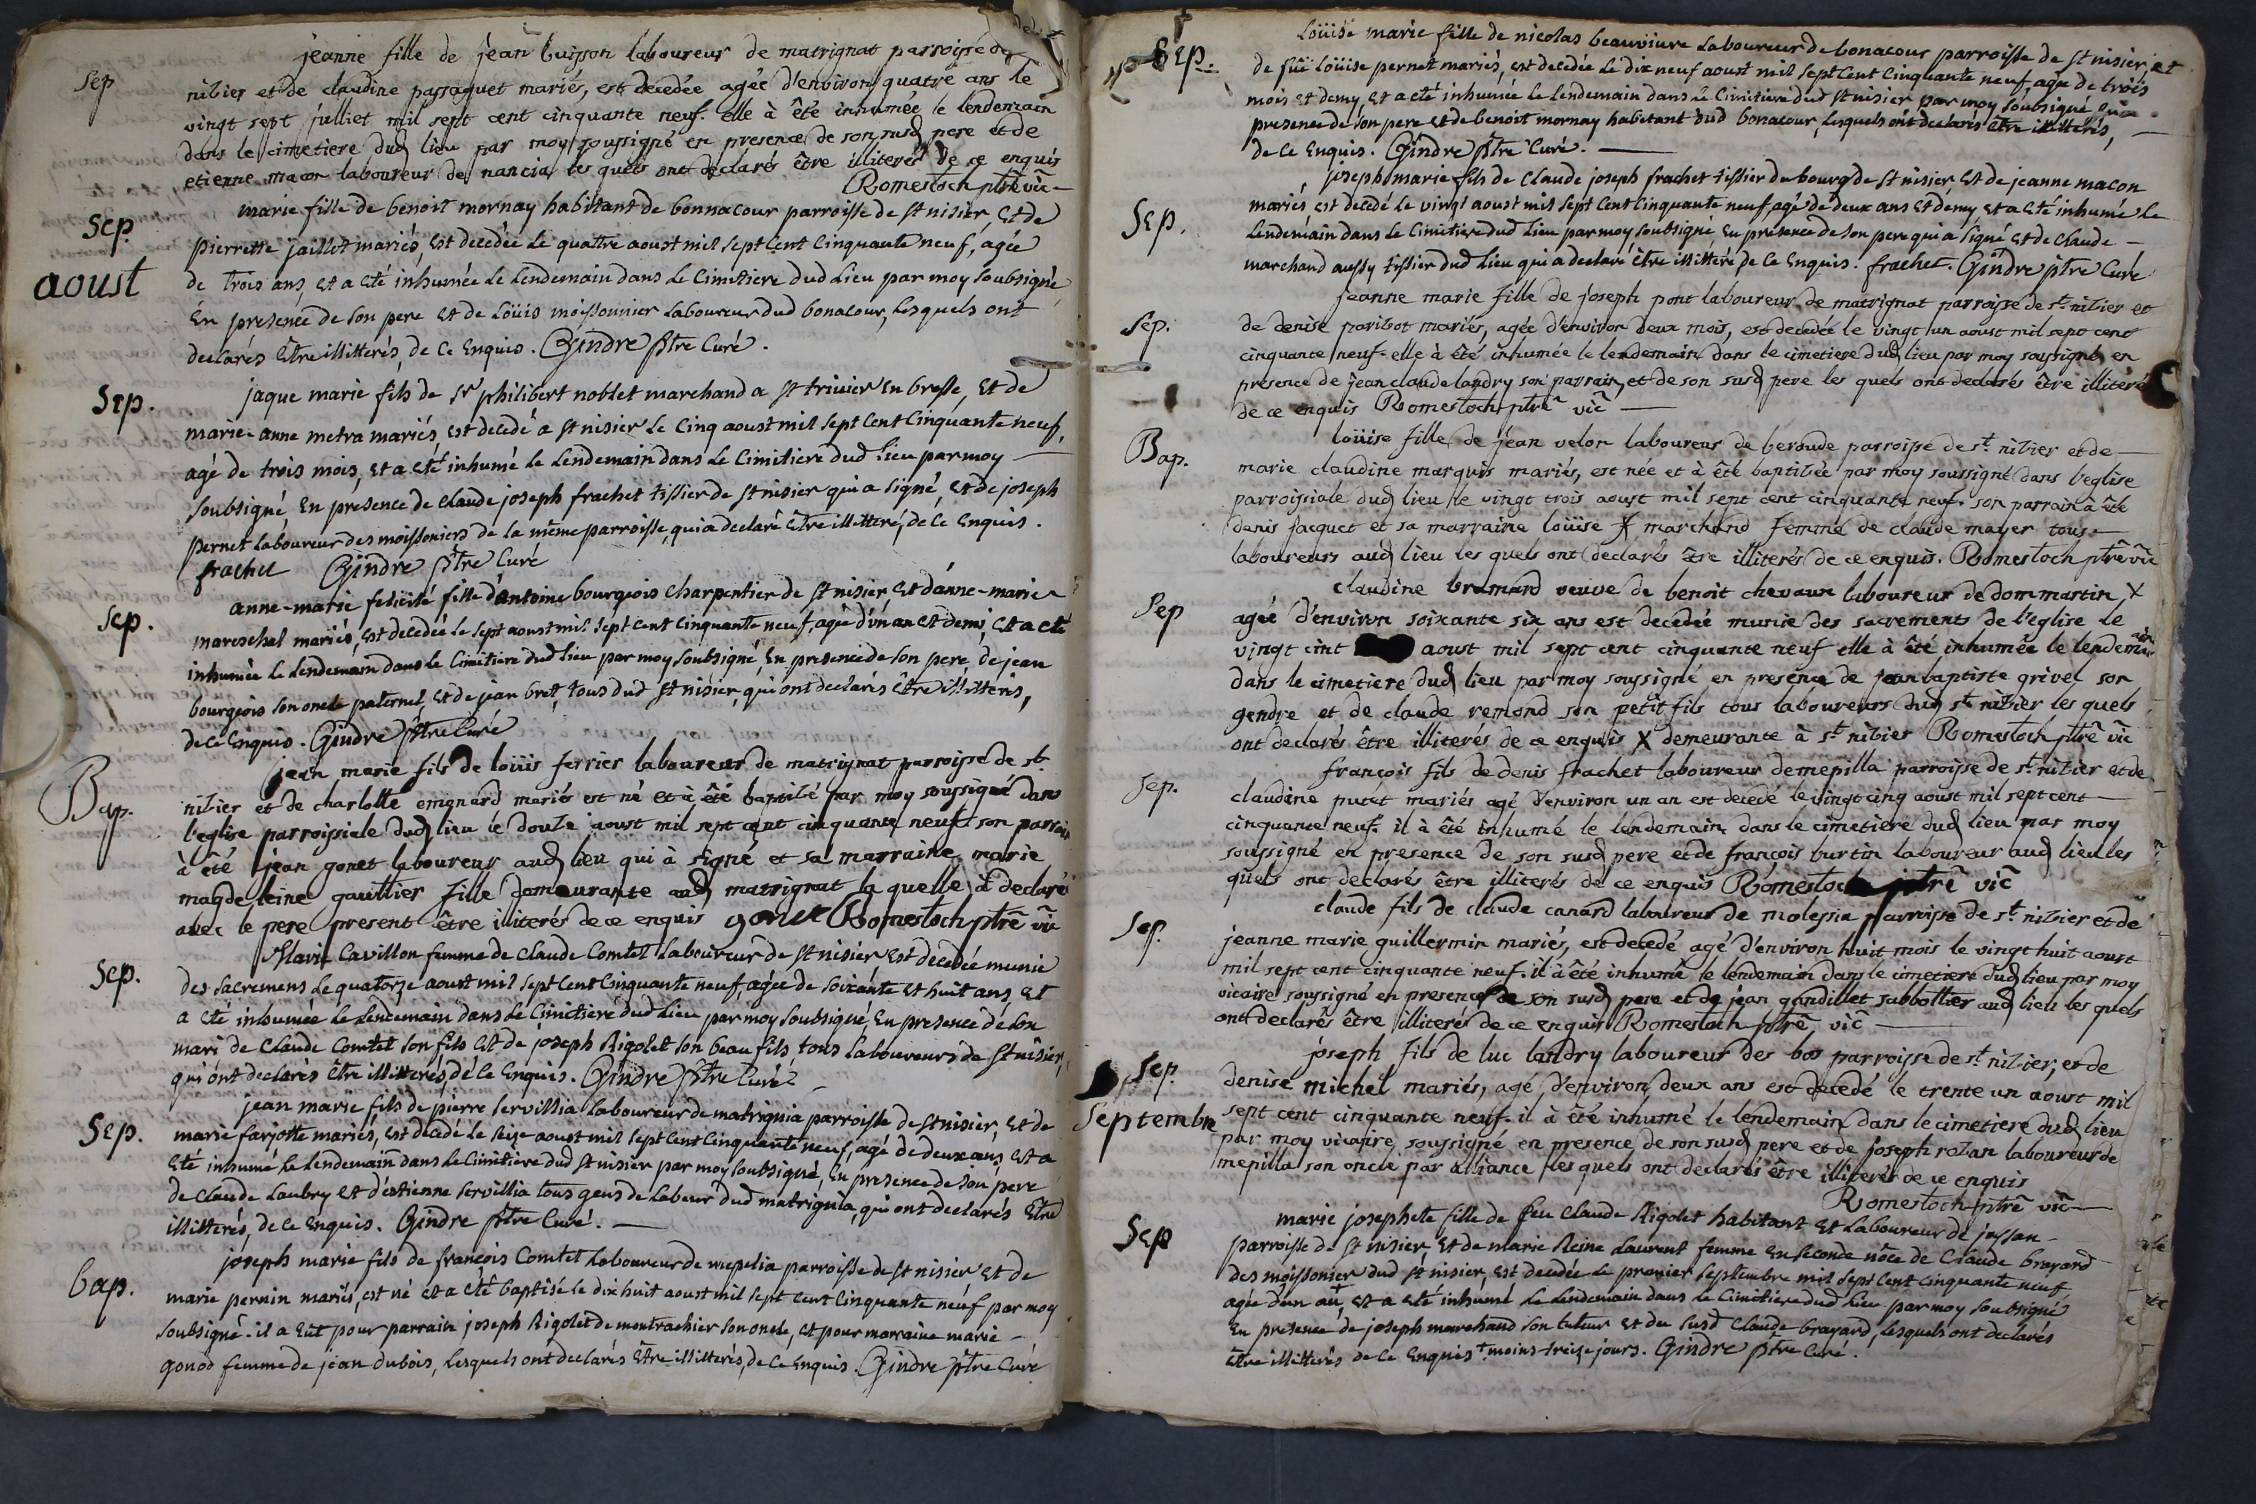 jeanne fille de jean buisson laboureur de matrignat parroisse de
Sep
nibier et de claudine passaquet mariés, est decedée agée d'environ quatre ans le
vingt sept julliet mil sept cent cinquante neuf. elle à êté inhumée le lendemain
dans le cimetiere dud lieu par moy soussigné en presence de son susd pere et de
etienne macon laboureur de nancia les quels ont declarés être illiterés de ce enquis
Romestoch ptre vic
marie fille de benoit mornay habitant de bonnacour parroisse de st nisier et de
Sep.
pierrette jaillet mariés, est decedée le quattre aoust mil sept cent cinquante neuf, agée
aoust
de trois ans, et a eté inhumée le lendemain dans le cimitiere dud lieu par moy soubsigné
en presence de son pere et de loüis moissonnier laboureur dud bonacour, lesquels ont
declarés être illitterés, de ce enquis. Gindre ptre curé.
jaque marie fils de sr philibert noblet marchand a st trivier en bresse, et de
Sep.
marie-anne metra mariés, est decedé a st nisier le cinq aoust mil sept cent cinquante neuf,
agé de trois mois, et a eté inhumé le lendemain dans le cimitiere dud lieu par moy
soubsigné en presence de claude joseph frachet tissier de st nisier qui a signé, et de joseph
pernet laboureur des moissoniers de la même parroisse, qui a declaré être illitteré, de ce enquis.
frachet Gindre ptre curé
anne-marie felicité fille d'antoine bourgeois charpentier de st nisier et d'anne-marie
Sep.
mareschal mariés, est decedée le sept aoust mil sept cent cinquante neuf, agée d'un an et demi, et a eté
inhumée le lendemain dans le cimitiere dud lieu par moy soubsigné en presence de son pere, de jean
bourgeois son oncle paternel, et de jean bret, tous dud st nisier, qui ont declarés être illitterés,
de ce enquis. Gindre ptre curé
jean marie fils de loüis ferrier laboureur de matrignat parroisse de st
Bap.
nibier et de charlotte enignard mariés est né et à êté baptisé par moy soussigné dans
l'eglise parroissiale dud lieu le douze aoust mil sept cent cinquante neuf son parrain
à êté jean gonet laboureur aud lieu qui à signé et sa marraine marie
magdeleine gauttier fille demeurante aud matrignat la quelle à declaré
avec le pere present être illiterés de ce enquis gonet Romestoch ptre vic
Marie Cavillon femme de claude comtet laboureur de st nisier est decedée munie
Sep.
des sacremens le quatorze aoust mil sept cent cinquante neuf, agée de soixante et huit ans, et
a eté inhumée le lendemain dans le cimitiere dud lieu par moy soubsigné, en presence de son
mari de claude comtet son fils et de joseph Rigolet son beau fils, tous laboureurs de st nisier,
qui ont declarés être illitterés, de ce enquis. Gindre ptre curé
jean marie fils de pierre servillia laboureur de matrignia parroisse de st nisier, et de
Sep.
marie farjotte mariés, est decedé le seize aoust mil sept cent cinquante neuf, agé de deux ans, et a
eté inhumé le lendemain dans le cimitiere dud st nisier par moy soubsigné, en presence de son pere
de claude laubry et d'estienne servillia tous gens de labeur dud matrignia, qui ont declarés être
illitterés, de ce enquis. Gindre ptre curé.
joseph marie fils de françois comtet laboureur de mepelia parroisse de st nisier et de
bap.
marie pernin mariés, est né et a eté baptisé le dix huit aoust mil sept cent cinquante neuf par moy
soubsigné. il a eut pour parrain joseph Rigolet de montrachier son oncle, et pour marraine marie
gonod femme de jean dubois, lesquels ont declarés être illitterés, de ce enquis. Gindre ptre curé
Loüise marie fille de nicolas beauvivre laboureur de bonacour parroisse de st nisier, et
Sep.
de fuë loüise pernet mariés, est decedée le dix neuf aoust mil sept cent cinquante neuf, agée de trois
mois et demy, et a eté inhumée le lendemain dans le cimitiere dud st nisier par moy soubsigné en
presence de son pere et de benoit mornay habitant dud bonacour, lesquels ont declarés être illitterés,
de ce enquis. Gindre ptre curé.
joseph marie fils de claude joseph frachet tissier du bourg de st nisier, et de jeanne macon
Sep.
mariés est decedé le vingt aoust mil sept cent cinquante neuf, agé de deux ans et demy, et a eté inhumé le
lendemain dans le cimitiere dud lieu par moy soubsigné en presence de son pere qui a signé et de claude
marchand aussy tissier dud lieu qui a declaré être illitteré, de ce enquis. frachet. Gindre ptre curé
jeanne marie fille de joseph pont laboureur de matrignat parroisse de st nibier et
Sep.
de denise parisot mariés, agée d'environ deux mois, est decedée le vingt un aoust mil sept cent
cinquante neuf. elle à êté inhumée le lendemain dans le cimetiere dud lieu par moy soussigné en
presence de jean claude landry son parrain et de son susd pere les quels ont declarés être illiterés
de ce enquis Romestoch ptre vic
loüise fille de jean velon laboureur de beroude parroisse de st nibier et de
Bap.
marie claudine marquis mariés, est née et à êté baptisée par moy soussigné dans l'eglise
parroissiale dud lieu le vingt trois aoust mil sept cent cinquante neuf. son parrain à êté
denis jacquet et sa marraine loüise marchand femme de claude mayer tous
laboureurs aud lieu les quels ont declarés être illiterés de ce enquis. Romestoch ptre vic
claudine bramard veuve de benoit chevaux laboureur de dommartin X
Sep
agée d'environ soixante six ans est decedée munie des sacrements de l'eglise le
vingt cint aoust mil sept cent cinquante neuf elle à êté inhumée le lendemain
dans le cimetiere dud lieu par moy soussigné en presence de jean baptiste grivel son
gendre et de claude remond son petit fils tous laboureurs dud st nibier les quels
ont declarés être illiterés de ce enquis X demeurante à st nibier Romestoch ptre vic
françois fils de denis frachet laboureur de mepilla parroisse de st nibier et de
Sep.
claudine putet mariés agé d'environ un an est decedé le vingt cinq aoust mil sept cent
cinquante neuf. il à êté inhumé le lendemain dans le cimetiere dud lieu par moy
soussigné en presence de son susd pere et de françois burtin laboureur aud lieu les
quels ont declarés être illiterés de ce enquis Romestoch ptre vic
claude fils de claude canard laboureur de molessia parroisse de st nibier et de
Sep.
jeanne marie guillermin mariés, est decedé agé d'environ huit mois le vingt huit aoust
mil sept cent cinquante neuf. il à êté inhumé le lendemain dans le cimetiere dud lieu par moy
vicaire soussigné en presence de son susd pere et de jean gandillet sabbottier aud lieu les quels
ont declarés être illiterés de ce enquis Romestoch ptre vic
joseph fils de luc landry laboureur des bos parroisse de st nibier, et de
Sep.
denise michel mariés, agé d'environ deux ans est decedé le trente un aoust mil
Septembre
sept cent cinquante neuf. il à êté inhumé le lendemain dans le cimetiere dud lieu
par moy vicaire soussigné en presence de son susd pere et de joseph rozan laboureur de
mepilla son oncle par alliance les quels ont declarés être illiterés de ce enquis
Romestoch ptre vic
marie josephete fille de feu claude Rigolet habitant et laboureur de jassan
Sep
parroisse de st nisier, et de marie Reine laurent femme en seconde nôce de claude brayard
des moissonier dud st nisier, est decedée le premier septembre mil sept cent cinquante neuf
agée d'un an+, et a eté inhumé le lendemain dans le cimitiere dud lieu par moy soubsigné
en presence de joseph marchand son tuteur et du susd claude brayard, lesquels ont declarés
être illitterés de ce enquis + moins treize jours. Gindre ptre curé.